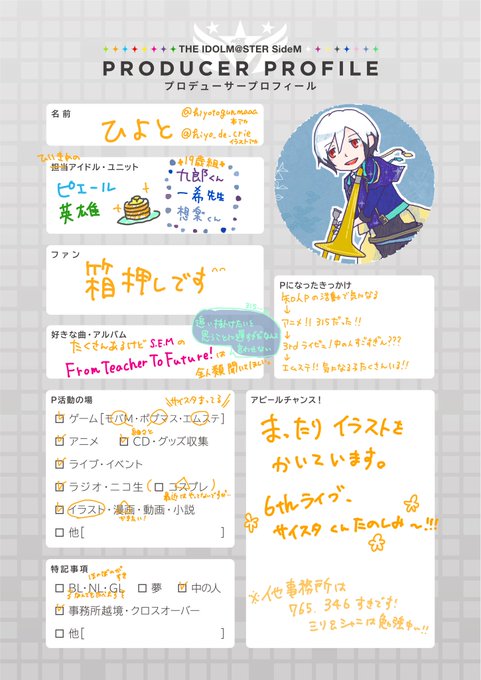 THE IDOLM@STER SideM
PRODUCER PROFILE
プロデューサープロフィール
名前
ひよと
@hiyotogunmaaa
@hiyo_de_crie
イラストアカ
担当アイドル・ユニット
ピエール
英雄
*19歳組*
九郎くん
一希先生
想楽くん
ファン
箱押しです^^
好きな曲・アルバム
たくさんあるけど S.E.M
From Teacher To Future! は
全人類聞いてほしい。
追い掛けたいと
思うことに遅すぎだなんて
言わせない
Pになったきっかけ
知人Pの活動で気になる
↓
アニメ!! 315だった!!
↓
3rdライビュ!中の人すごすぎん???
↓
エムステ!! 気になる子たくさんいる!!
P活動の場
サイスタまってる
ゲーム[モバM・ポプマス・エムステ]
アニメ
CD・グッズ収集
ライブ・イベント
ラジオ・ニコ生(
コスプレ)
イラスト・漫画・動画・小説
かきたい!
他[ ]
アピールチャンス!
まったり イラストを
かいています。
6thライブ、
サイスタ くんたのしみ〜!!!
※他事務所は
765、346 すきです!
ミリとシャニは勉強中〜!!
特記事項
BL・NL・GL
夢
中の人
事務所越境・クロスオーバー
他[ ]